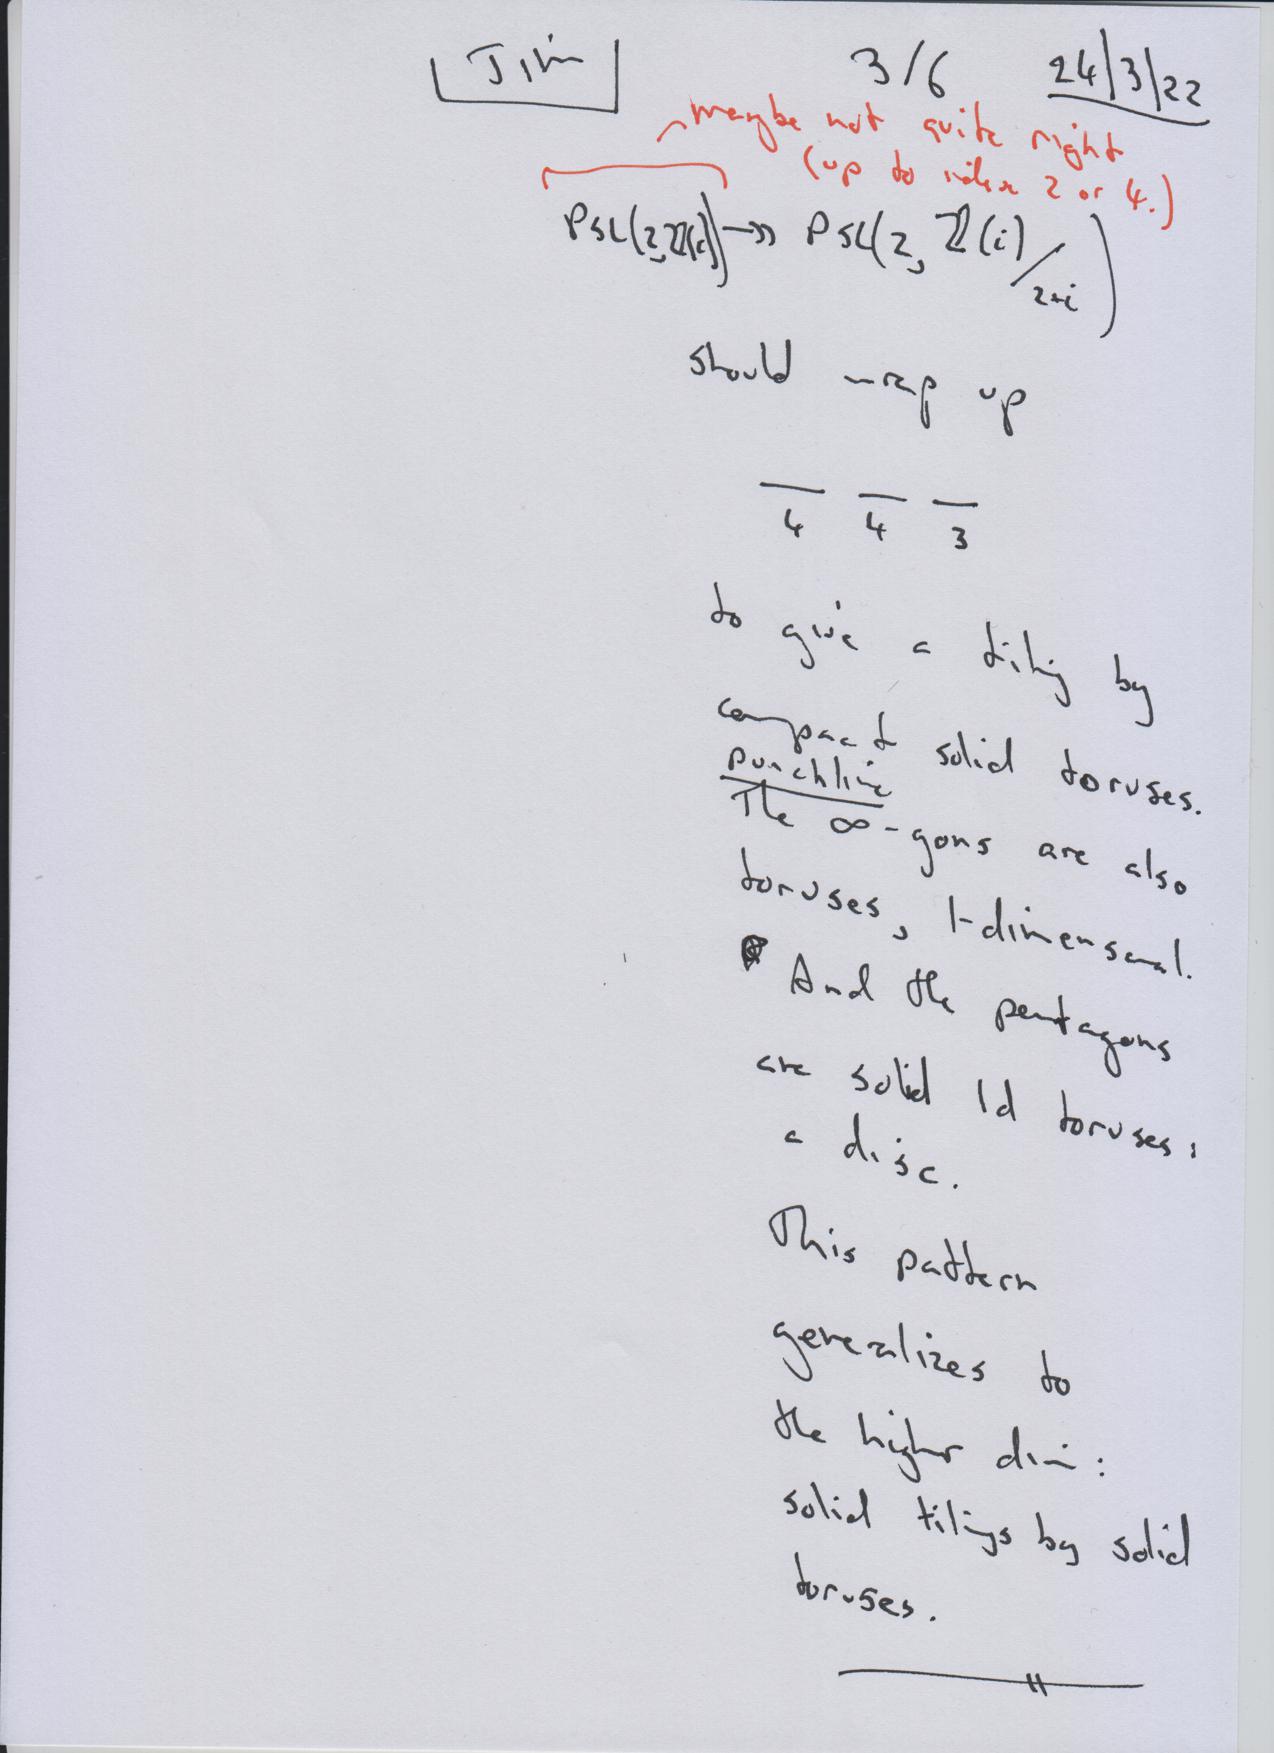 Jim 3/6 24/3/22
maybe not quite right
(up to index 2 or 4.)
PSL(2,ℤ(i)) ↠ PSL(2, ℤ(i)/2+i)
should wrap up
4 4 3
to give a tiling by
compact solid toruses.
punchline
The ∞-gons are also
toruses, 1-dimensional.
And the pentagons
are solid 1d toruses:
a disc.
This pattern
generalizes to
the higher dim:
solid tilings by solid
toruses.